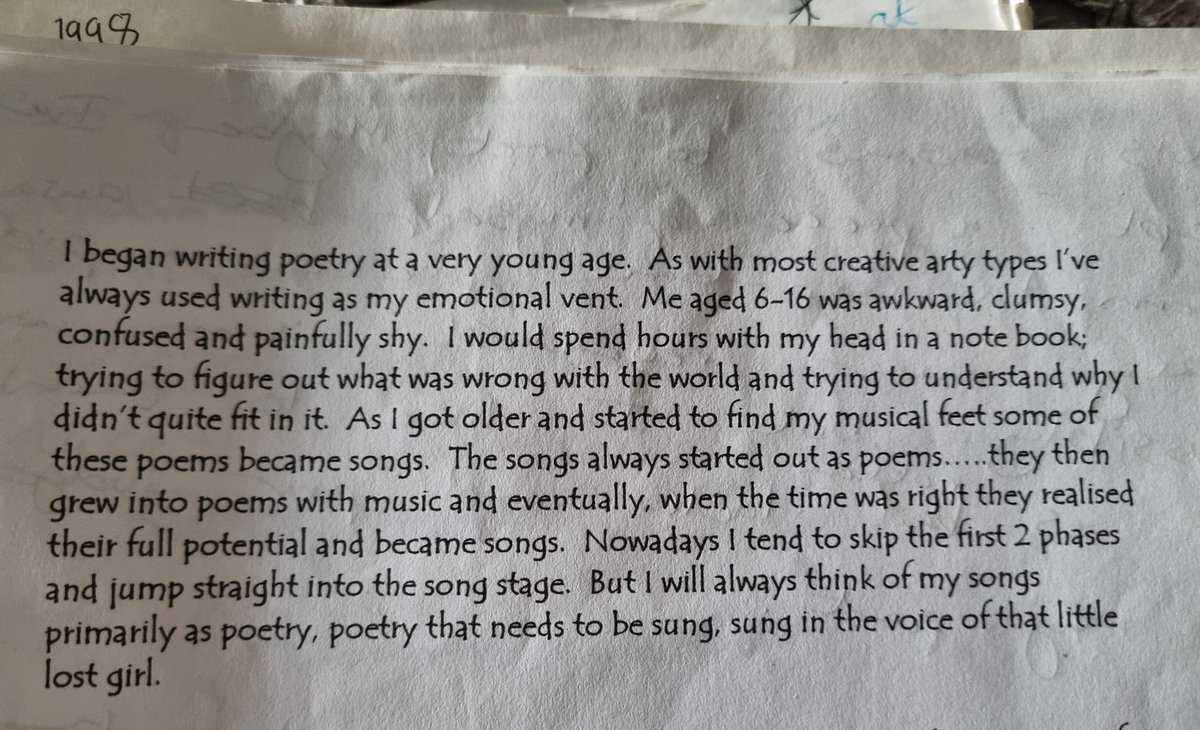 1998
I began writing poetry at a very young age.  As with most creative arty types I've
always used writing as my emotional vent.  Me aged 6-16 was awkward, clumsy,
confused and painfully shy.  I would spend hours with my head in a note book;
trying to figure out what was wrong with the world and trying to understand why I
didn't quite fit in it.  As I got older and started to find my musical feet some of
these poems became songs.  The songs always started out as poems.....they then
grew into poems with music and eventually, when the time was right they realised
their full potential and became songs.  Nowadays I tend to skip the first 2 phases
and jump straight into the song stage.  But I will always think of my songs
primarily as poetry, poetry that needs to be sung, sung in the voice of that little
lost girl.